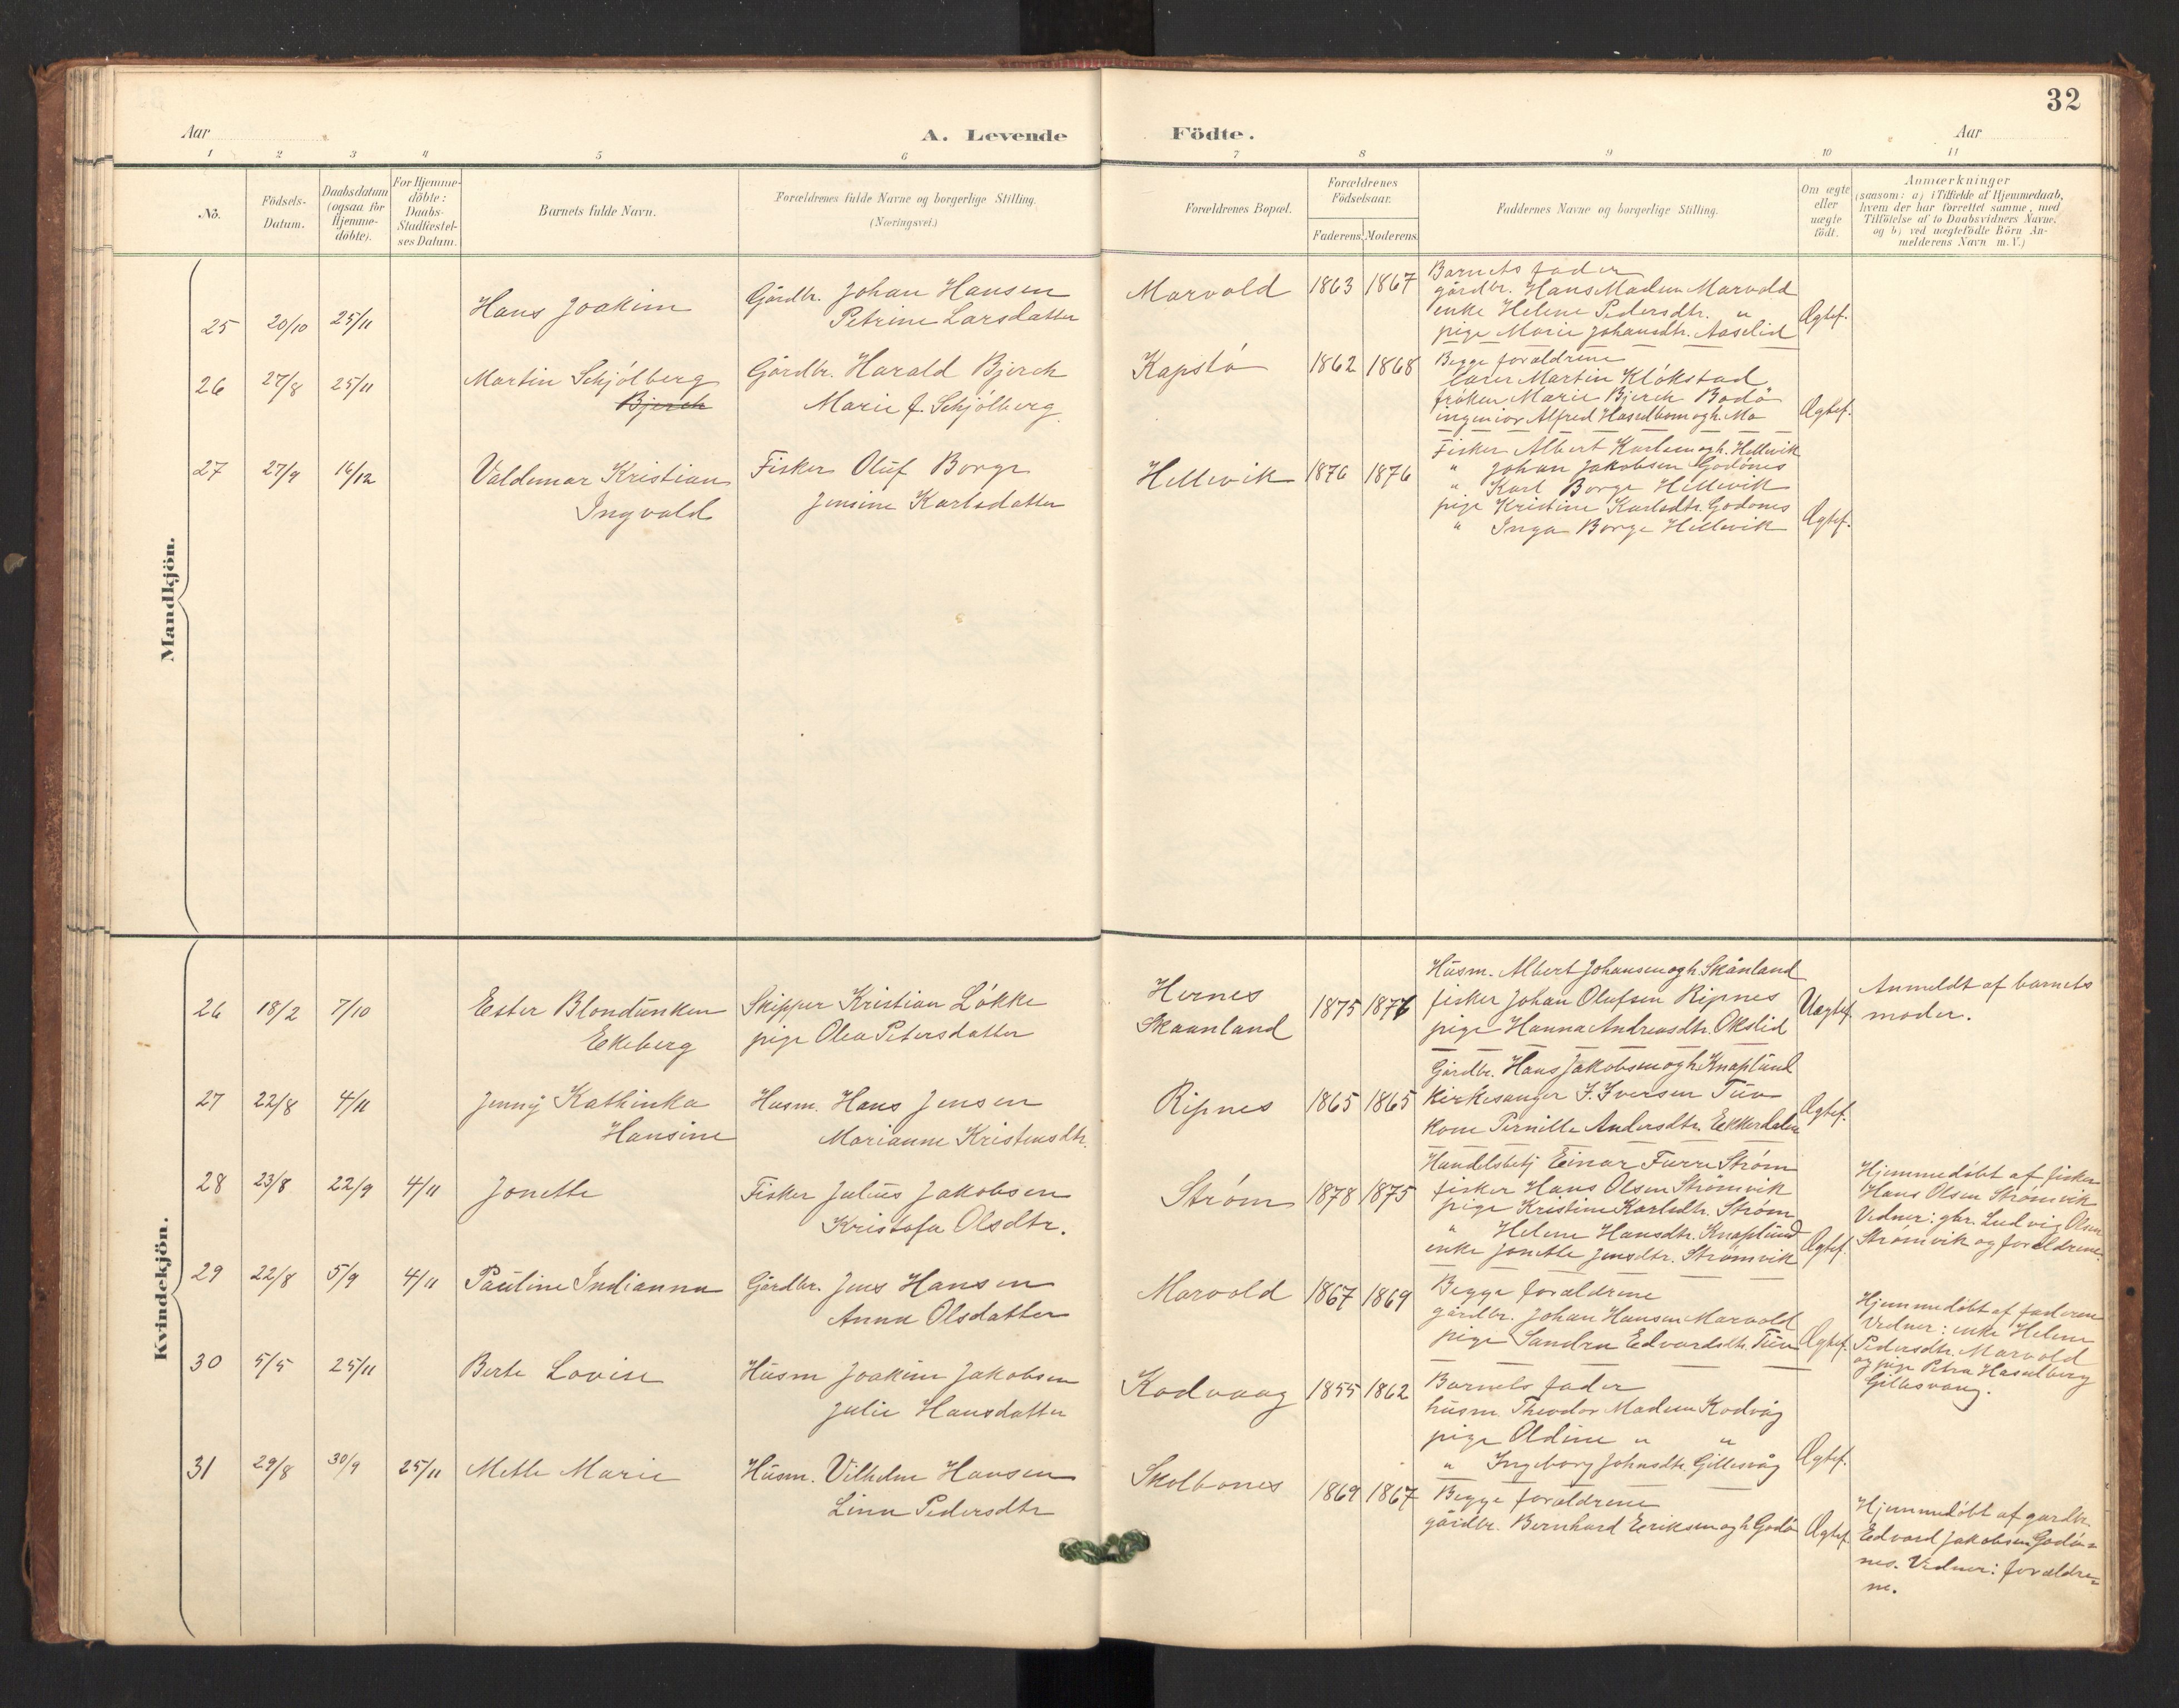 32
Aar
A. Levende
Födte.
Aar
1 2 3 4 5 6 7 8 9 10 11
No.
Födsels-
Datum.
Daabsdatum
(ogsaa for
Hjemme-
döbte).
For Hjemme-
döbte:
Daabs-
Stadfæstel-
ses Datum.
Barnets fulde Navn.
Forældrenes fulde Navne og borgerlige Stilling.
(Næringsvei.)
Forældrenes Bopæl.
Forældrenes
Födselsaar.
Faderens. Moderens.
Faddernes Navne og borgerlige Stilling.
Om ægte
eller
uægte
födt.
Anmærkninger
(saasom: a) i Tilfælde af Hjemmedaab,
hvem der har forrettet samme, med
Tilföielse af to Daabsvidners Navne,
og b) ved uægtefödte Börn An-
melderens Navn m. V.)
Mandkjön.
25 20/10 25/11
Hans Joakim
Gårdbr. Johan Hansen
Petrine Larsdatter
Marvold 1863 1867
Barnets fader
gårdbr. Hans Madsen Marvold
enke Helene Pedersdtr. "
pige Marie Johansdtr. Aaselid
Ægtef.
26 27/8 25/11
Martin Schjölberg
Bjerch
Gårdbr. Harald Bjerch
Marie f. Schjölberg
Kapstö 1862 1868
Begge forældrene
lærer Martin Klökstad
fröken Marie Bjerch Bodö
ingeniör Alfred Hasselbom ogh. Mo
Ægtef.
27 27/9 16/12
Valdemar Kristian
Ingvald
Fisker Oluf Borge
Jensine Karlsdatter
Hellevik 1876 1876
Fisker Albert Karlsen ogh. Hellevik
" Johan Jakobsen Godönes
" Karl Borge Hellevik
pige Kristine Karlsdtr. Godönes
" Inga Borge Hellevik
Ægtef.
Kvindekjön.
26 18/2 7/10
Ester Blondünken
Ekeberg
Skipper Kristian Lökke
pige Olea Petersdatter
Hernes
Skaanland
1875 1876
Husm. Albert Johansen ogh. Skånland
fisker Johan Olufsen Ripnes
pige Hanna Andreasdtr. Okslid
Uægtef.
Anmeldt af barnets
moder.
27 22/8 4/11
Jenny Kathinka
Hansine
Husm. Hans Jensen
Marianne Kristensdtr.
Ripnes 1865 1865
Gårdbr. Hans Jakobsen ogh. Knaplund
Kirkesanger I. Iversen Tuv
Kone Pernille Andersdtr. Ekkerdalen
Ægtef.
28 23/8 22/9 4/11
Jonette
Fisker Julius Jakobsen
Kristofa Olsdtr.
Ström 1878 1875
Handelsbetj Einar Furre Ström
fisker Hans Olsen Strömvik
pige Kristine Karlsdtr. Ström
" Helene Hansdtr. Knaplund
enke Jonette Jensdtr. Strömvik
Ægtef.
Hjemmedöbt af fisker
Hans Olsen Strömvik
Vidner: gbr. Ludvig Olsen
Strömvik og forældrene.
29 22/8 5/9 4/11
Pauline Indianna
Gårdbr. Jens Hansen
Anna Olsdatter
Marvold 1867 1869
Begge forældrene
gårdbr. Johan Hansen Marvold
pige Sandra Edvardsdtr. Tuv
Ægtef.
Hjemmedöbt af faderen
Vidner: enke Helene
Pedersdtr. Marvold
og pige Petra Hasselberg
Gillesvaag.
30 5/5 25/11
Berte Lovise
Husm Joakim Jakobsen
Julie Hansdatter
Kodvaag 1855 1862
Barnets fader
husm. Theodor Madsen Kodvåg
pige Oldine " "
" Ingeborg Johnsdtr. Gillesvåg
Ægtef.
31 29/8 30/9 25/11
Mette Marie
Husm. Vilhelm Hansen
Lina Pedersdtr
Skolbones 1869 1867
Begge forældrene
gårdbr. Bernhard Eriksen ogh. Godö
Ægtef.
Hjemmedöbt af gardbr.
Edvard Jakobsen Godö=
nes. Vidner: forældre=
ne.